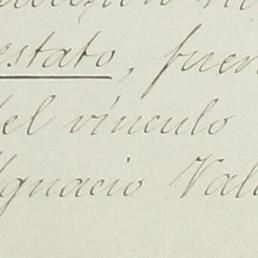 estato, fuer
del vínculo
Ignacio Val